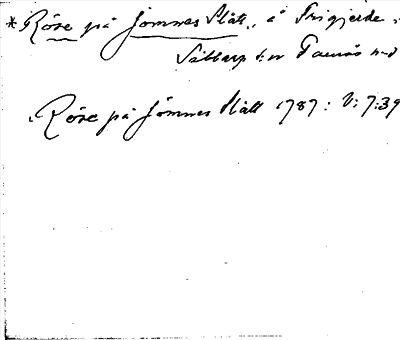 * Röse på Jömmes Slätt, å Frigjerde
Sättarp s:n
Röse på Jömmes Slätt 1787: V: 7:39